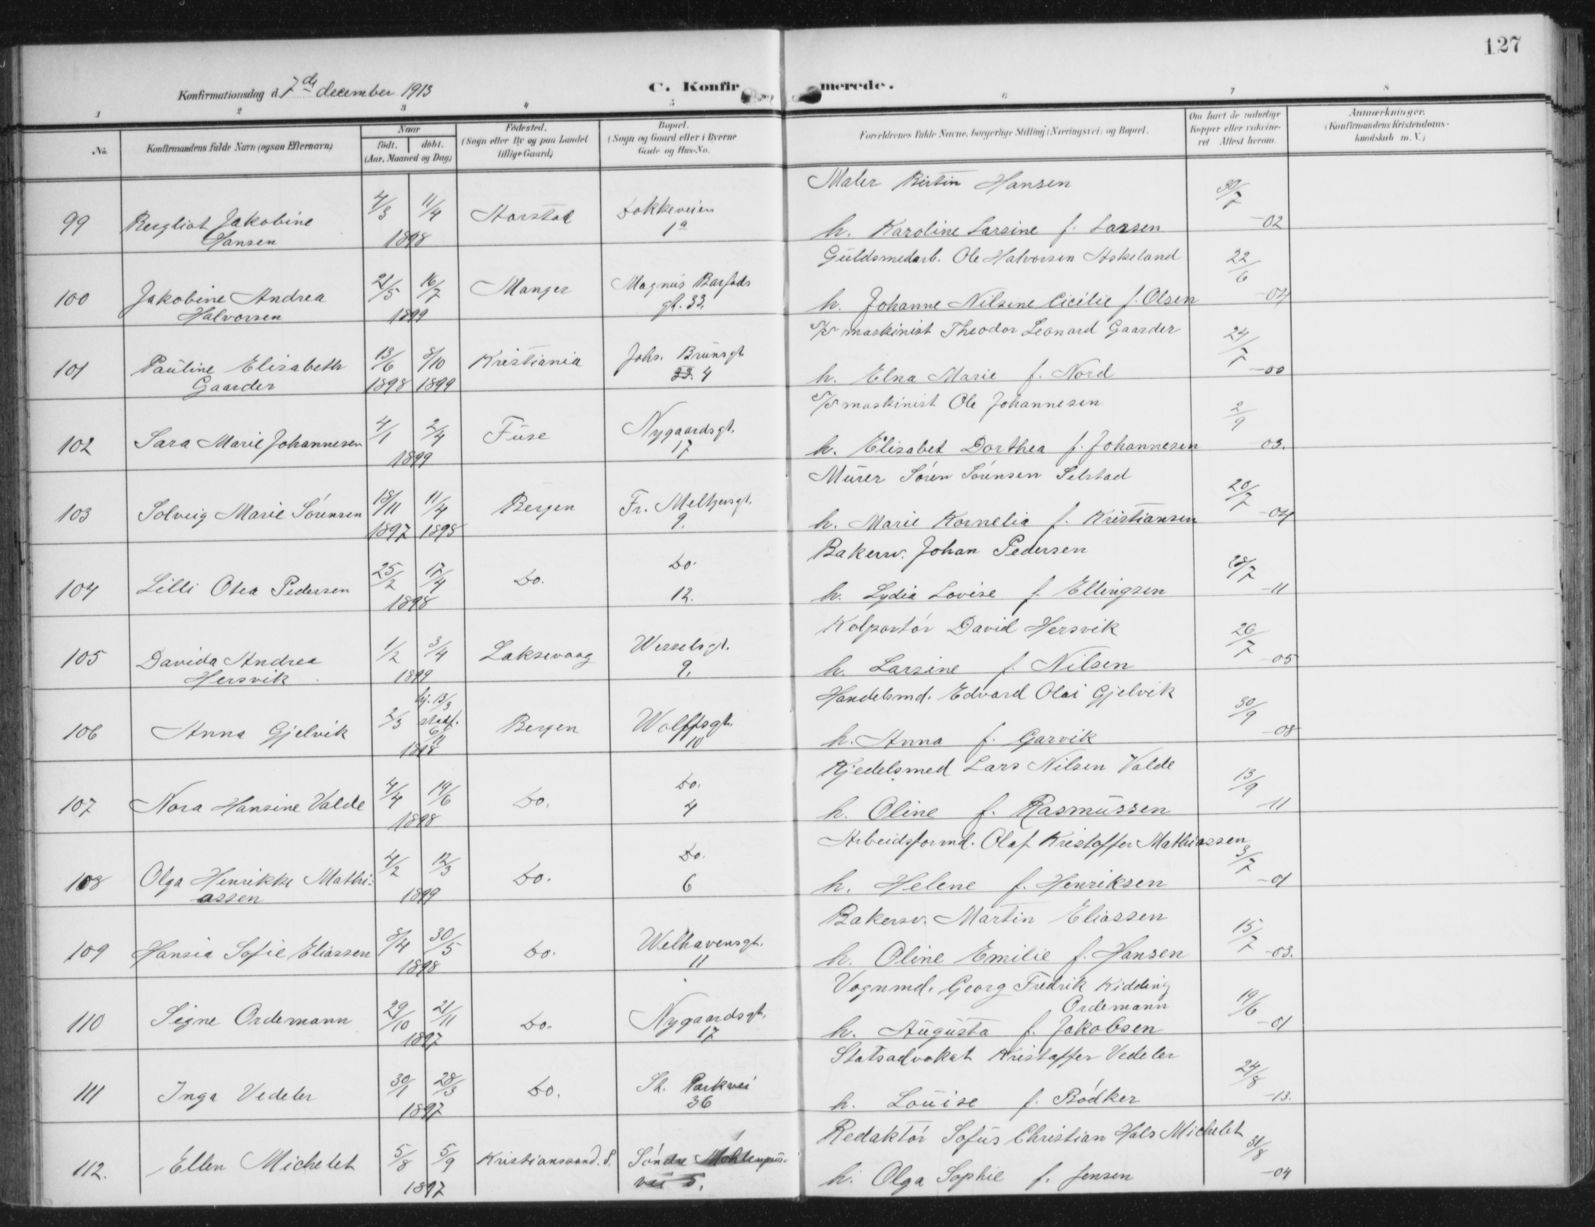 127
Konfirmationsdag d. 7de december 1913
C. Konfirmerede.
1 2 3 4 5 6 7 8
No.
Konfirmandens fulde Navn (ogsaa Efternavn)
Naar
født. døbt.
(Aar, Maaned og Dag)
Fødested.
(Sogn eller By og paa Landet
tillige Gaard)
Bopæl.
(Sogn og Gaard eller i Byerne
Gade og Hus-No.
Forældrenes fulde Navne, borgerlige Stilling (Næringsvei) og Bopæl.
Om havt de naturlige
Kopper eller vaksine-
ret Attest herom.
Anmærkninger.
(Konfirmandens Kristendoms-
kundskab m. V.)
4/3 11/4 Maler Hansen 30/7
99 Bergliot Jakobine Harstad Dokkeveien
Hansen 1898 1a h. Karoline Larsine f. Larsen -02
21/5 16/7 Guldsmedarb. Ole Halvorsen Askeland 22/6
100 Jakobine Andrea Manger Magnus Barfods
Halvorsen 1899 gt. 33. h. Johanne Nilsine Cicilie f. Olsen -04
13/6 8/10 maskinist Theodor Leonard Gaarder 24/7
101 Pauline Elisabeth Kristiania Johs. Brunsgt
Gaarder 1898 1899 4 h. Elna Marie f. Nord -00
4/1 2/4 maskinist Ole Johannesen 2/9
102 Sara Marie Johannesen Fuse Nygaardsgt.
1899 17 h. Elisabet Dorthea f. Johannesen -03.
18/11 11/4 Murer Sören Sörensen Selstad 20/7
103 Solveig Marie Sörensen Bergen Fr. Meltzersgt.
1897 1898 9. h. Marie Kornelia f. Kristiansen -04
25/2 17/4 Do. Bakersv. Johan Pedersen
104 Lilli Otea Pedersen Do.
1898 12. h. Lydia Lovise f. Ellingsen -11
1/2 3/4 Kolportör David Hersvik 26/7
105 Davida Andrea Laksevaag Wesselsgt.
Hersvik 1899 9. h. Larsine f. Nilsen -05
2/3 hj. 13/3 stadf. Handelsmd. Edvard Olai Gjelvik 30/9
106 Anna Gjelvik Bergen Wolffsgt.
1898 10 h. Anna f. Garvik -08
4/4 19/6 Do. Kjedelsmed Lars Nilsen Valde 13/9
107 Nora Hansine Valde Do.
1898 4 h. Oline f. Rasmussen -11
4/2 12/3 Do. Arbeidsformd. Olaf Kristoffer Mathiassen 3/7
108 Olga Henrikke Mathi- Do.
assen 1899 6 h. Helene f. Henriksen -01
8/4 30/5 Bakersv. Martin Eliassen 15/7
109 Hansia Sofie Eliassen Do. Welhavensgt.
1898 11 h. Oline Emilie f. Hansen -03.
29/10 21/11 Vognmd. Georg Fredrik Kidding 19/6
Ordemann
110 Signe Ordemann Do. Nygaardsgt.
1897 17 h. Augusta f. Jakobsen -01
30/1 28/3 Statsadvokat Kristoffer Vedeler 24/8
111 Inga Vedeler Do. St. Parkvei
1897 36 h. Louise f. Bödker -13.
5/8 5/9 Redaktör Sofus Christian Hals Michelet 31/8
112. Ellen Michelet Kristianssand. S. Söndre
1897 vei 5. h. Olga Sophie f. Jensen -04